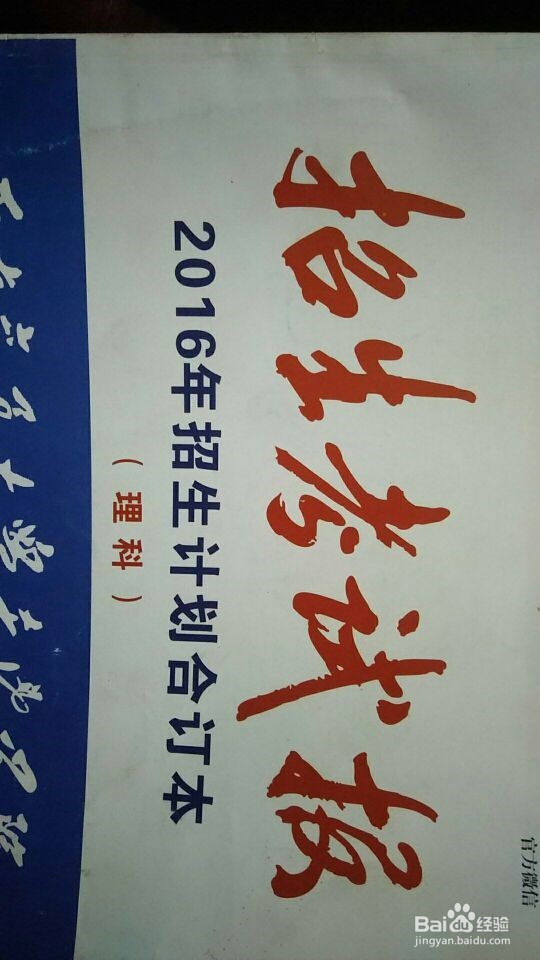 官方微信
招生考试报
2016年招生计划合订本
（理科）
Baidu经验
jingyan.baidu.com